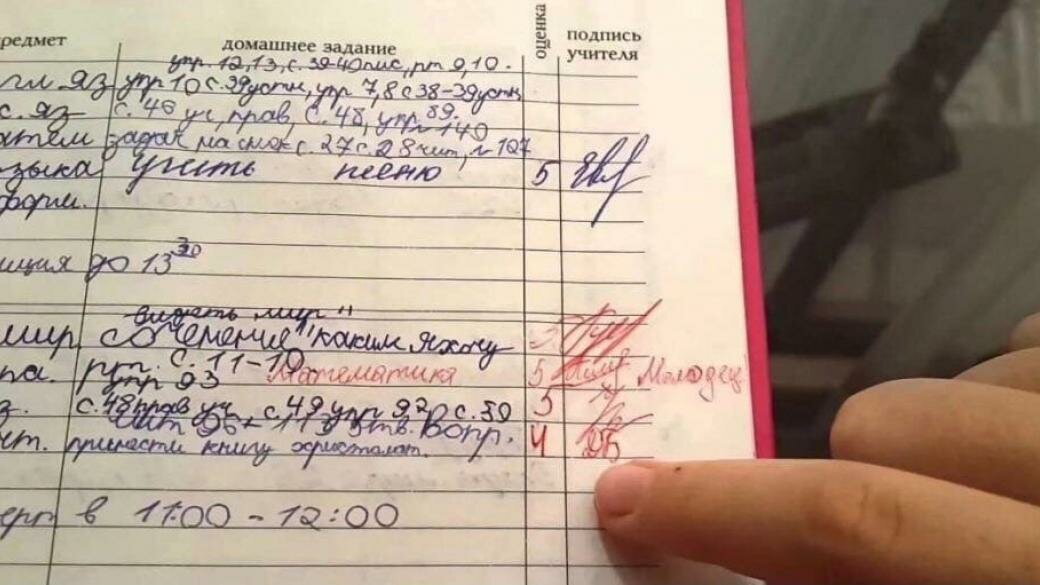 предмет домашнее задание оценка подпись учителя
упр. 12, 13, с. 39-40 пис, рт 9, 10.
гл. яз упр 10 с. 39 устн, упр 7, 8 с 38-39 устн
с. яз с. 46 уч, прав, с. 48, упр. 89.
атем задач на смек с. 27 с. 28 чит, №127 140
зыка учить песню 5
форм.
иция до 13 30
видеть мир"
мир сочинение "каким я хочу
ра. рт. с. 11-10 Математика 5 Молодец
упр 93
з. с. 48 прав уч, с. 49 упр 92 с. 50 5
чит 96-113 отв. вопр. 4
т. принести книгу
ерг в 11:00 - 12:00